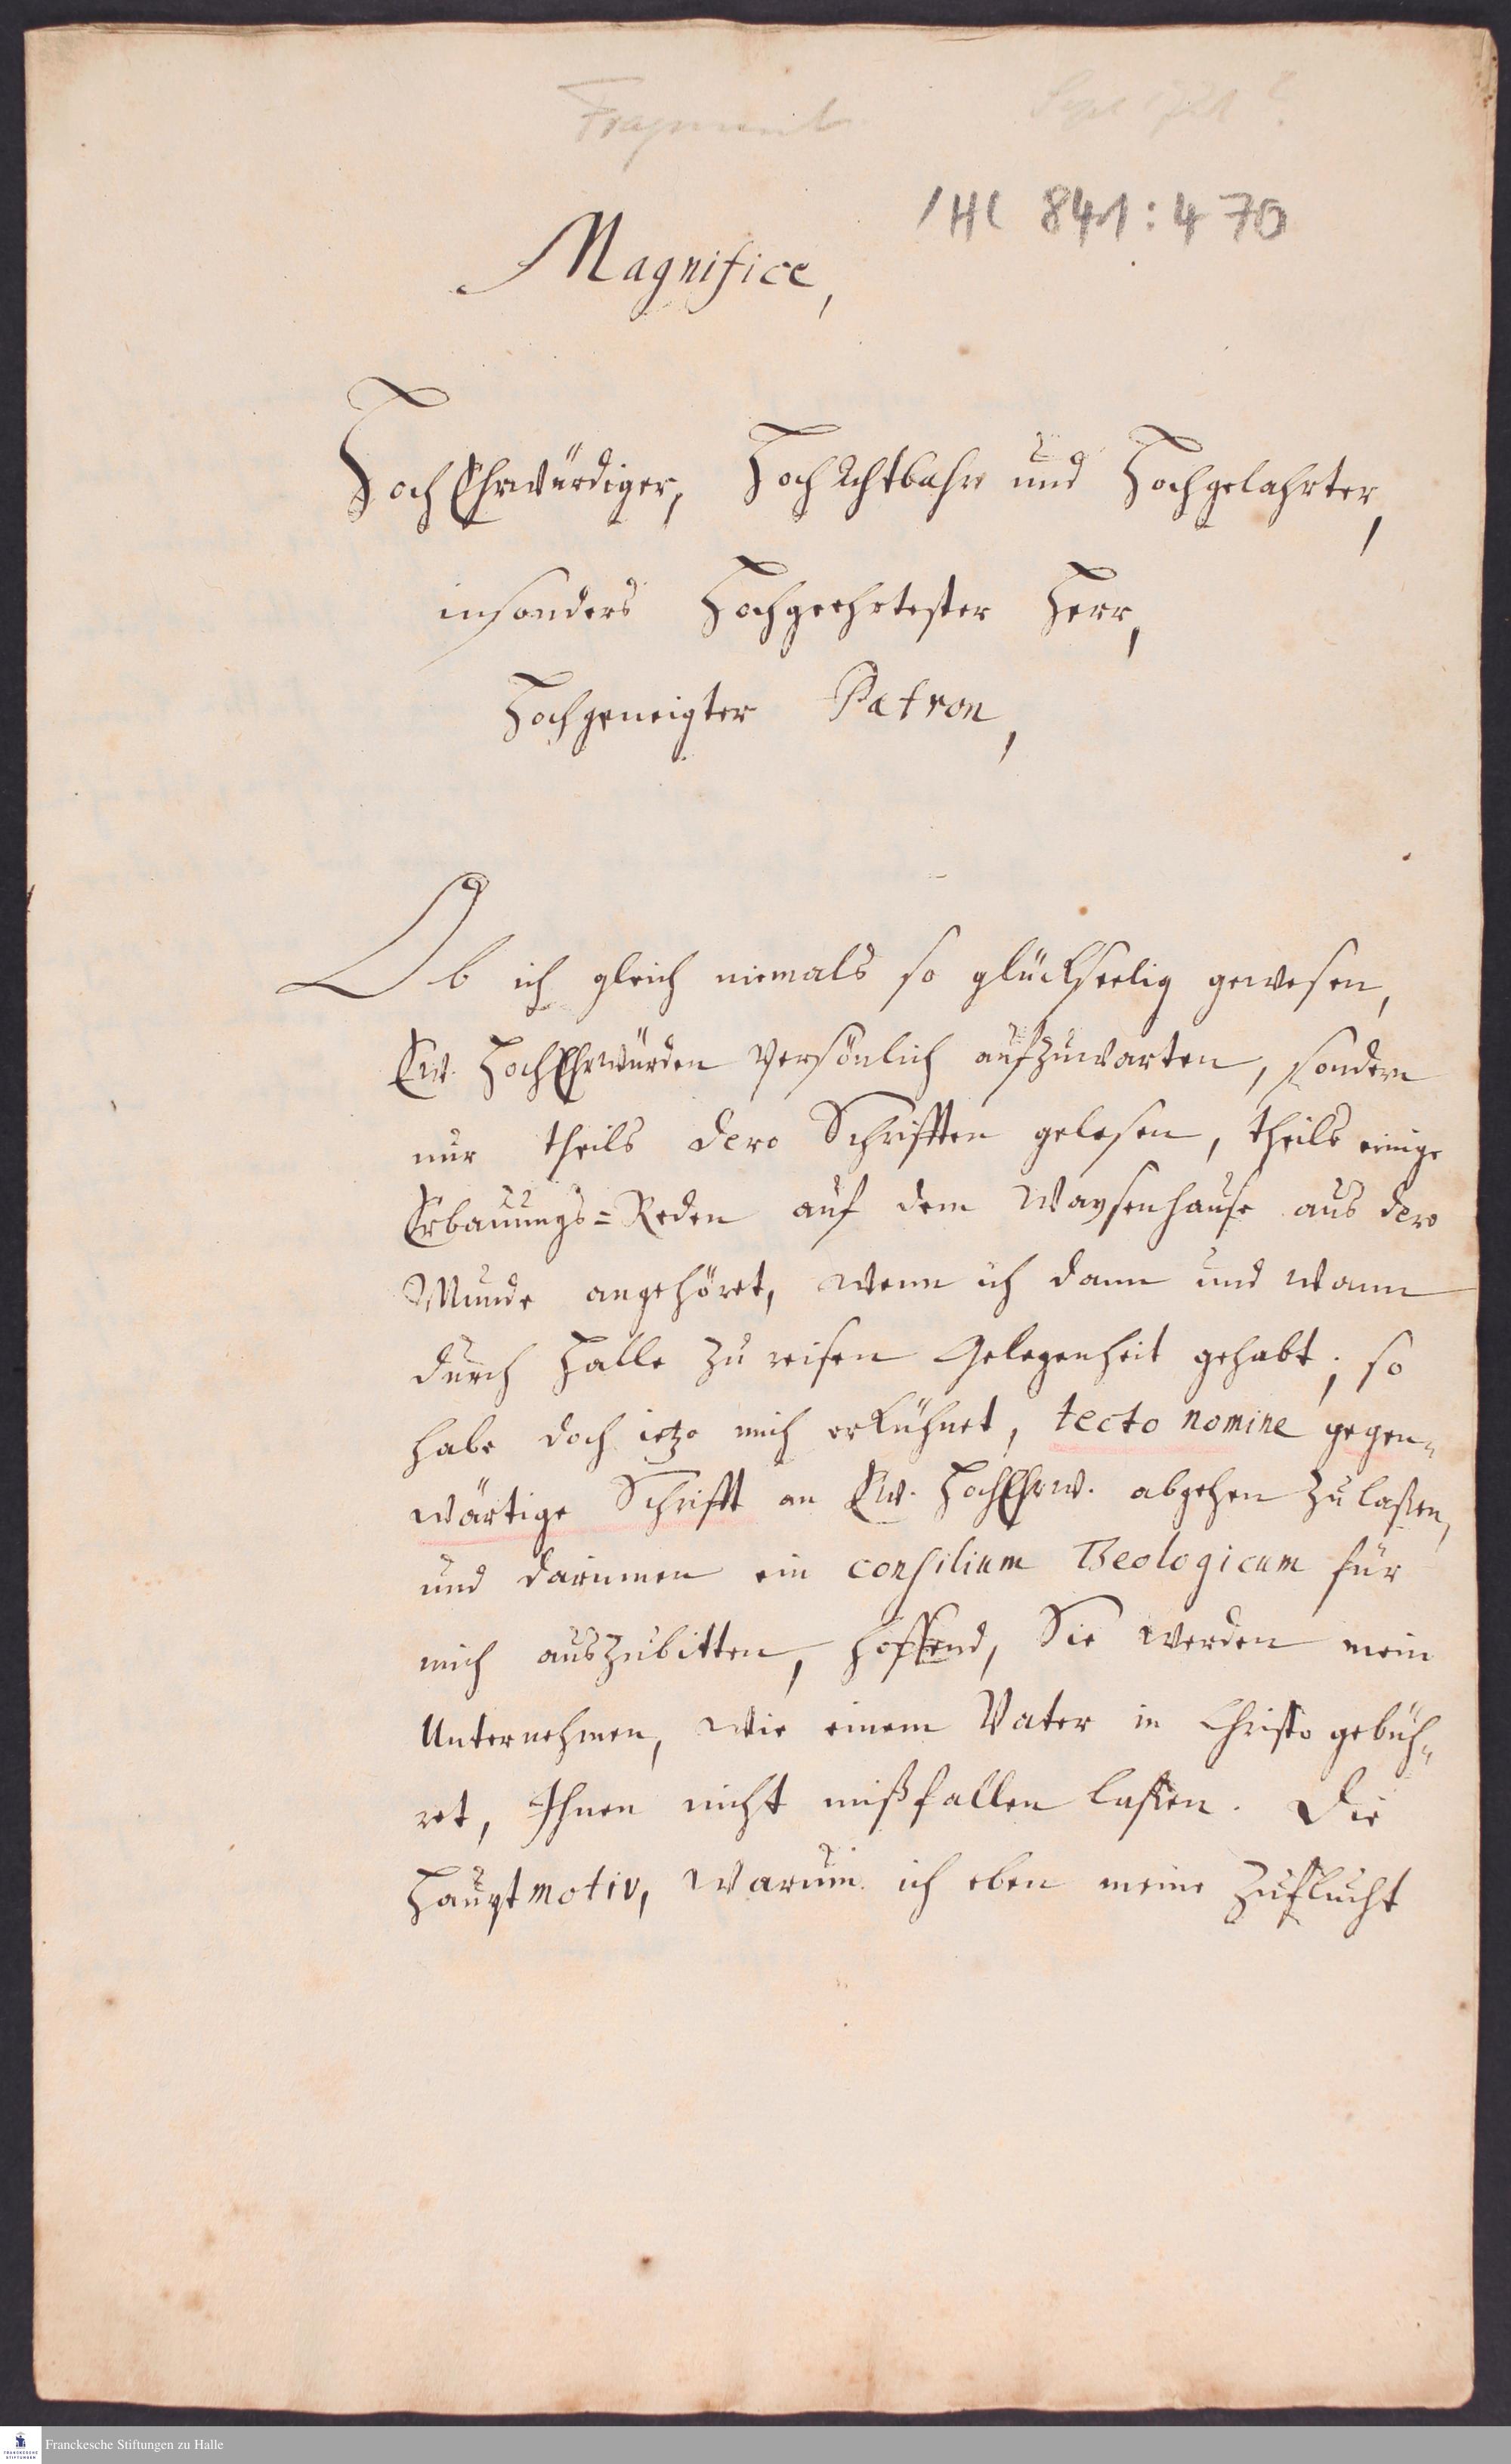 Fragment Sept 1721?
/HC 841:470
Magnifice,
HochEhrwürdiger, HochAchtbahr und Hochgelahrter,
insonders Hochgeehrtester Herr,
Hochgeneigter Patron,
Ob ich gleich niemals so glückseelig gewesen,
Ew. HochEhrwürden persönlich aufzuwarten, sondern
nur theils dero Schrifften gelesen, theils einige
Erbauungs=Reden auf dem Waysenhause aus dero
Munde angehöret, wenn ich dann und wann
durch Halle zu reisen Gelegenheit gehabt; so
habe doch ietzo mich erkühnet, tecto nomine gegen=
wärtige Schrifft an Ew. HochEhrw. abgehen zu laßen,
und darinnen ein consilium Theologicum für
mich auszubitten, hoffend, Sie werden mein
Unternehmen, wie einem Vater in Christo gebüh=
ret, Ihnen nicht mißfallen laßen. Die
Hauptmotiv, warum ich eben meine Zuflucht
FRANCKESCHE STIFTUNGEN
Franckesche Stiftungen zu Halle